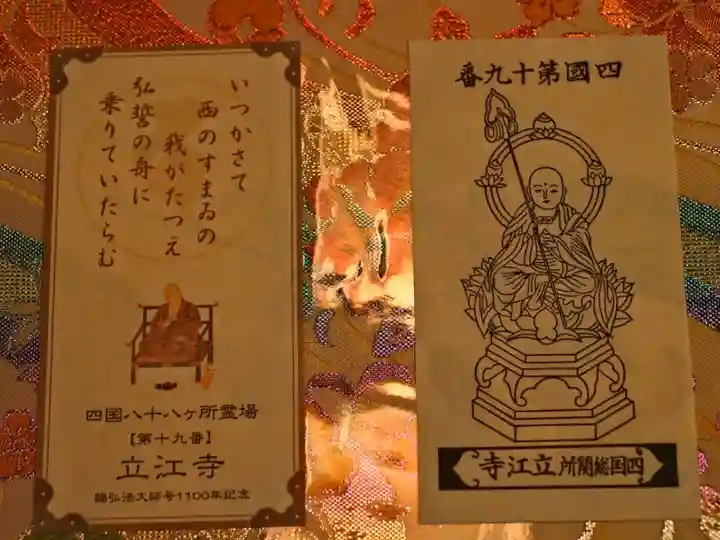 いつかさて
西のすまゐの
我がたつえ
弘誓の舟に
乗りていたらむ
四国八十八ヶ所霊場
【第十九番】
立江寺
賜弘法大師号1100年記念
四國第十九番
四国総関所立江寺